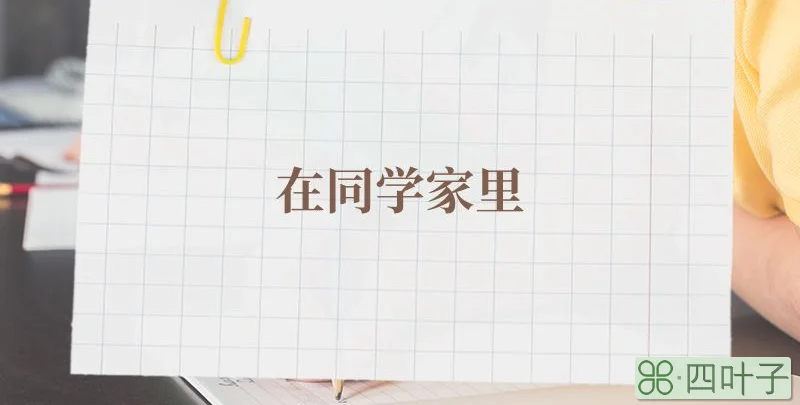 在同学家里
四叶子